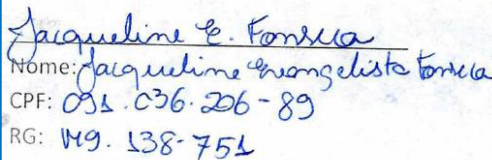 Jacqueline E. Fonseca
Nome: Jacqueline Evangelista Fonseca
CPF: 091.036.206-89
RG: M9.138-751